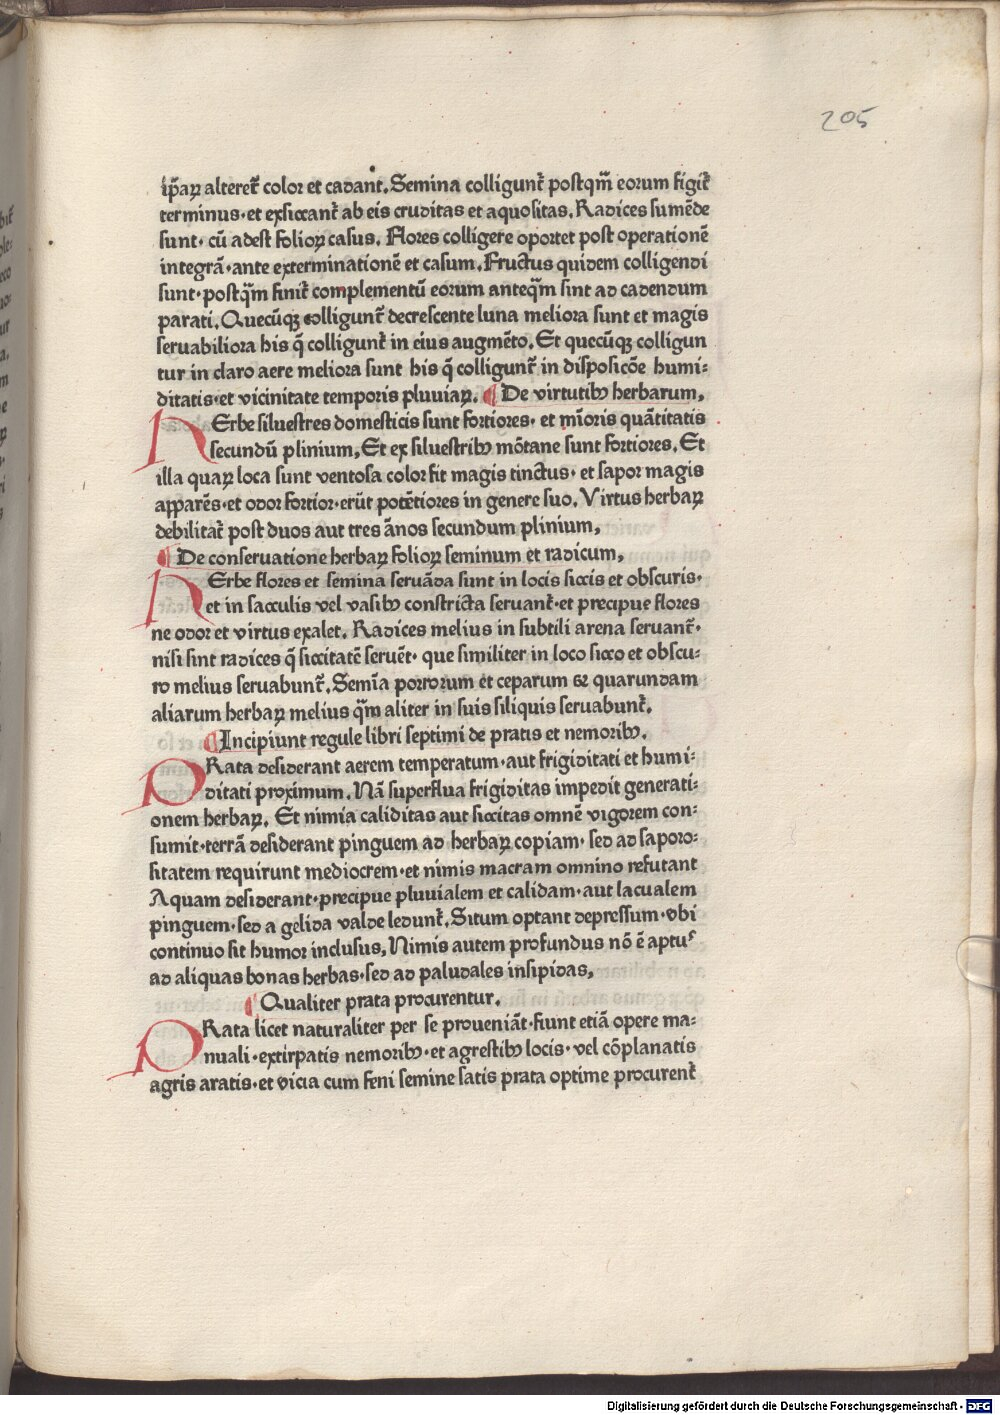 205
ip̃aꝝ alteret᷑ color et cadant. Semina colligunt᷑ postqm̃ eorum figit᷑
terminus · et exsiccant᷑ ab eis cruditas et aquositas. Radices sumẽde
sunt · cũ adest folioꝝ casus. Flores colligere oportet post operationẽ
integrã · ante exterminationẽ et casum. Fructus quidem colligendi
sunt · postqm̃ finit᷑ complementũ eorum anteqm̃ sint ad cadendum
parati. Quecũqꝫ colligunt᷑ decrescente luna meliora sunt et magis
seruabiliora his q̃ colligunt᷑ in eius augmẽto. Et quecũqꝫ colligun
tur in claro aere meliora sunt his q̃ colligunt᷑ in disposicõe humi:
ditatis · et vicinitate temporis pluuiaꝝ. ¶ De virtutibꝫ herbarum,
HErbe siluestres domesticis sunt fortiores · et mĩoris quãtitatis
secundũ plinium, Et ex siluestribꝫ mõtane sunt fortiores. Et
illa quaꝝ loca sunt ventosa color fit magis tinctus · et sapor magis
apparẽs · et odor fortior · erũt potẽtiores in genere suo. Virtus herbaꝝ
debilitat᷑ post duos aut tres ãnos secundum plinium,
¶ De conseruatione herbaꝝ folioꝝ seminum et radicum,
HErbe flores et semina seruãda sunt in locis siccis et obscuris ·
et in sacculis vel vasibꝫ constricta seruant᷑ · et precipue flores
ne odor et virtus exalet. Radices melius in subtili arena seruant᷑ ·
nisi sint radices q̃ siccitatẽ seruẽt · que similiter in loco sicco et obscu:
ro melius seruabunt᷑. Semĩa porrorum et ceparum ⁊ quarundam
aliarum herbaꝝ melius qm̃ aliter in suis siliquis seruabunt᷑.
¶ Incipiunt regule libri septimi de pratis et nemoribꝫ.
PRata desiderant aerem temperatum · aut frigiditati et humi:
ditati proximum. Nã superflua frigiditas impedit generati:
onem herbaꝝ. Et nimia caliditas aut siccitas omnẽ vigorem con:
sumit · terrã desiderant pinguem ad herbaꝝ copiam · sed ad saporo:
sitatem requirunt mediocrem · et nimis macram omnino refutant
Aquam desiderant · precipue pluuialem et calidam · aut lacualem
pinguem · sed a gelida valde ledunt᷑. Situm optant depressum · vbi
continuo sit humor inclusus, Nimis autem profundus nõ ẽ aptuꝰ
ad aliquas bonas herbas · sed ad paludales insipidas,
¶ Qualiter prata procurentur.
PRata licet naturaliter per se proueniãt · fiunt etiã opere ma:
nuali · extirpatis nemoribꝫ · et agrestibꝫ locis · vel cõplanatis
agris aratis · et vicia cum feni semine satis prata optime procurent᷑
Digitalisierung gefördert durch die Deutsche Forschungsgemeinschaft - DFG